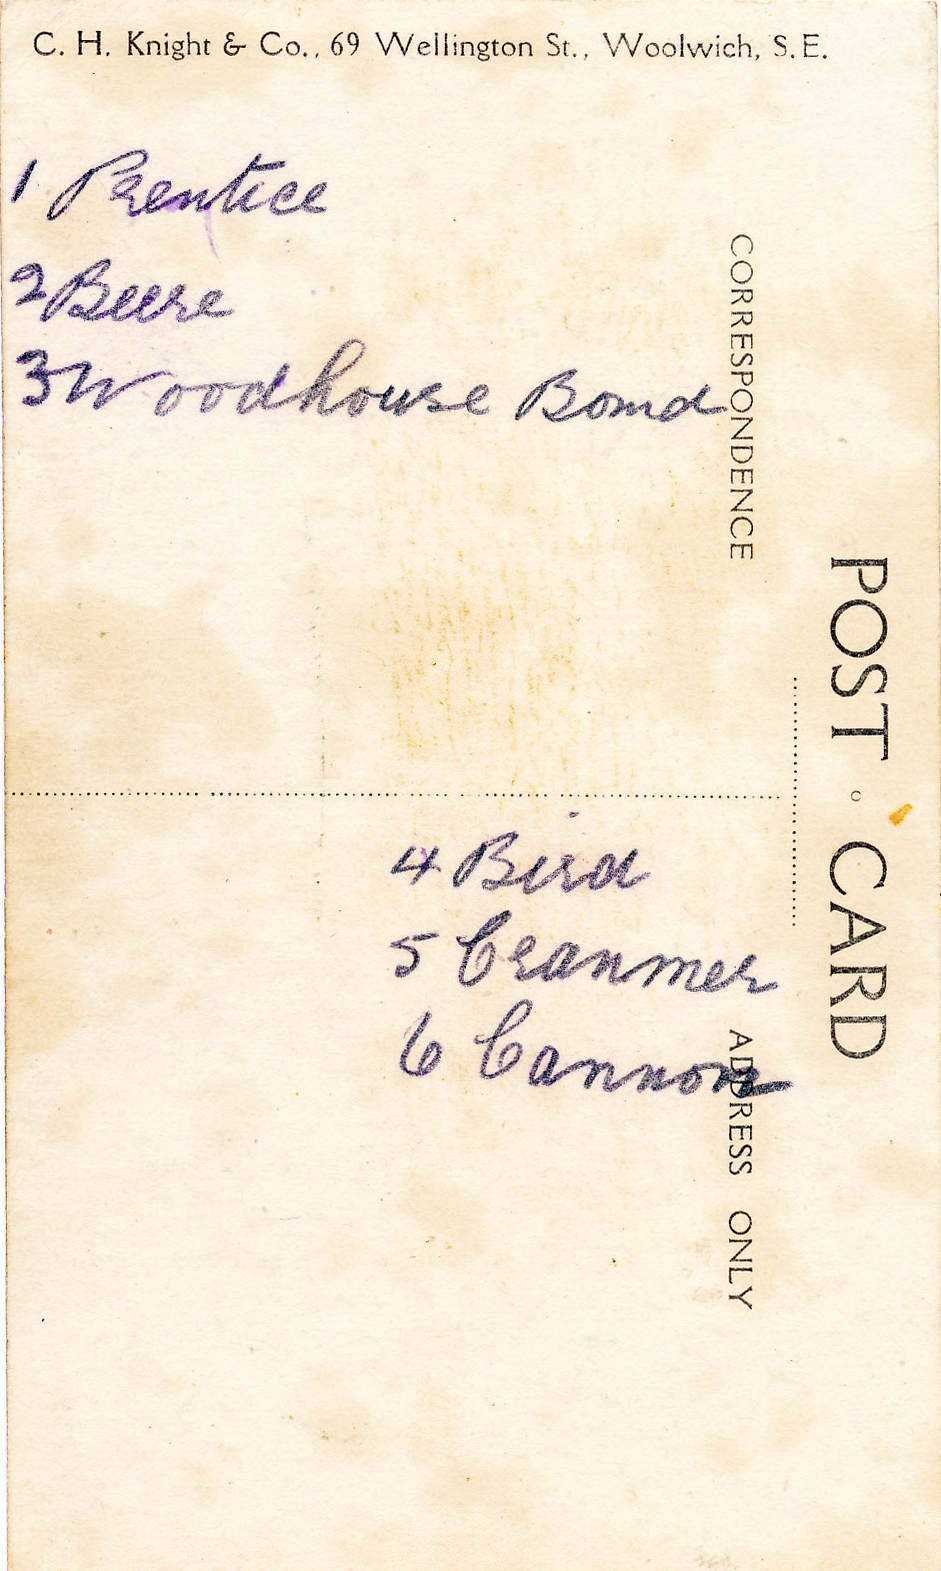 C. H. Knight & Co., 69 Wellington St., Woolwich, S.E.
1 Prentice
2 Beere
3 Woodhouse
CORRESPONDENCE
POST CARD
4 Bird
5 Cranmer
6 Cannon
ADDRESS ONLY